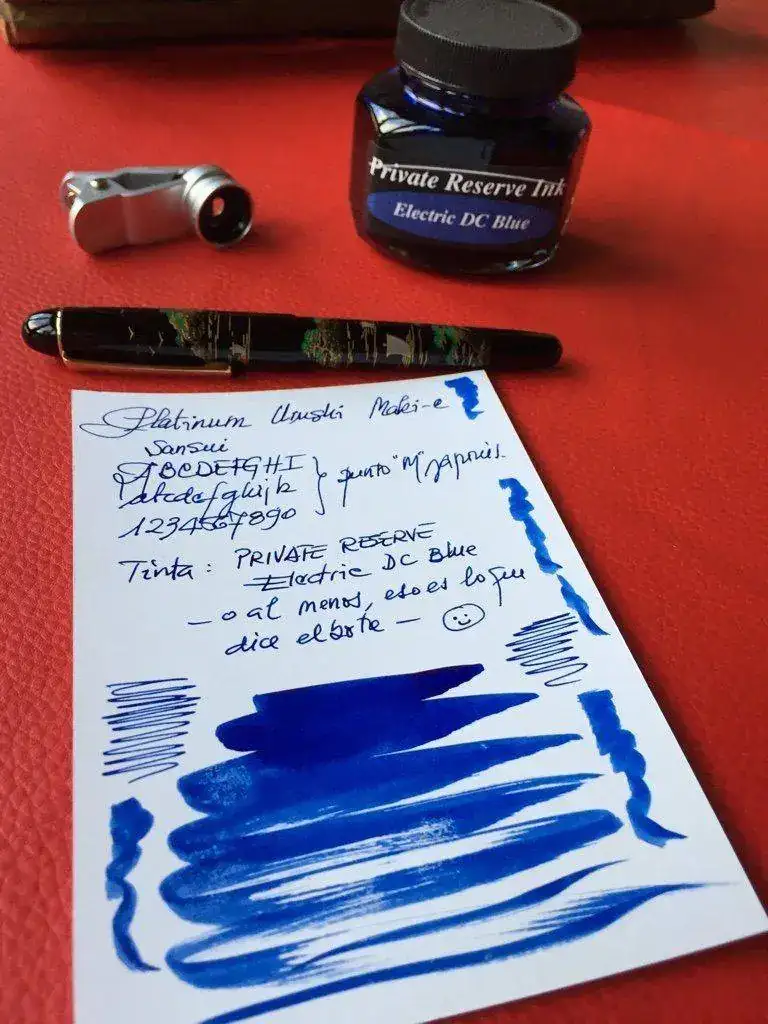 Private Reserve Ink
Electric DC Blue
Platinum Urushi Maki-e
Sansui
ABCDEFGHI
abcdefghijk
1234567890
} punto "M" japonés.
Tinta: PRIVATE RESERVE
Electric DC Blue
— o al menos, eso es lo que
dice el bote —